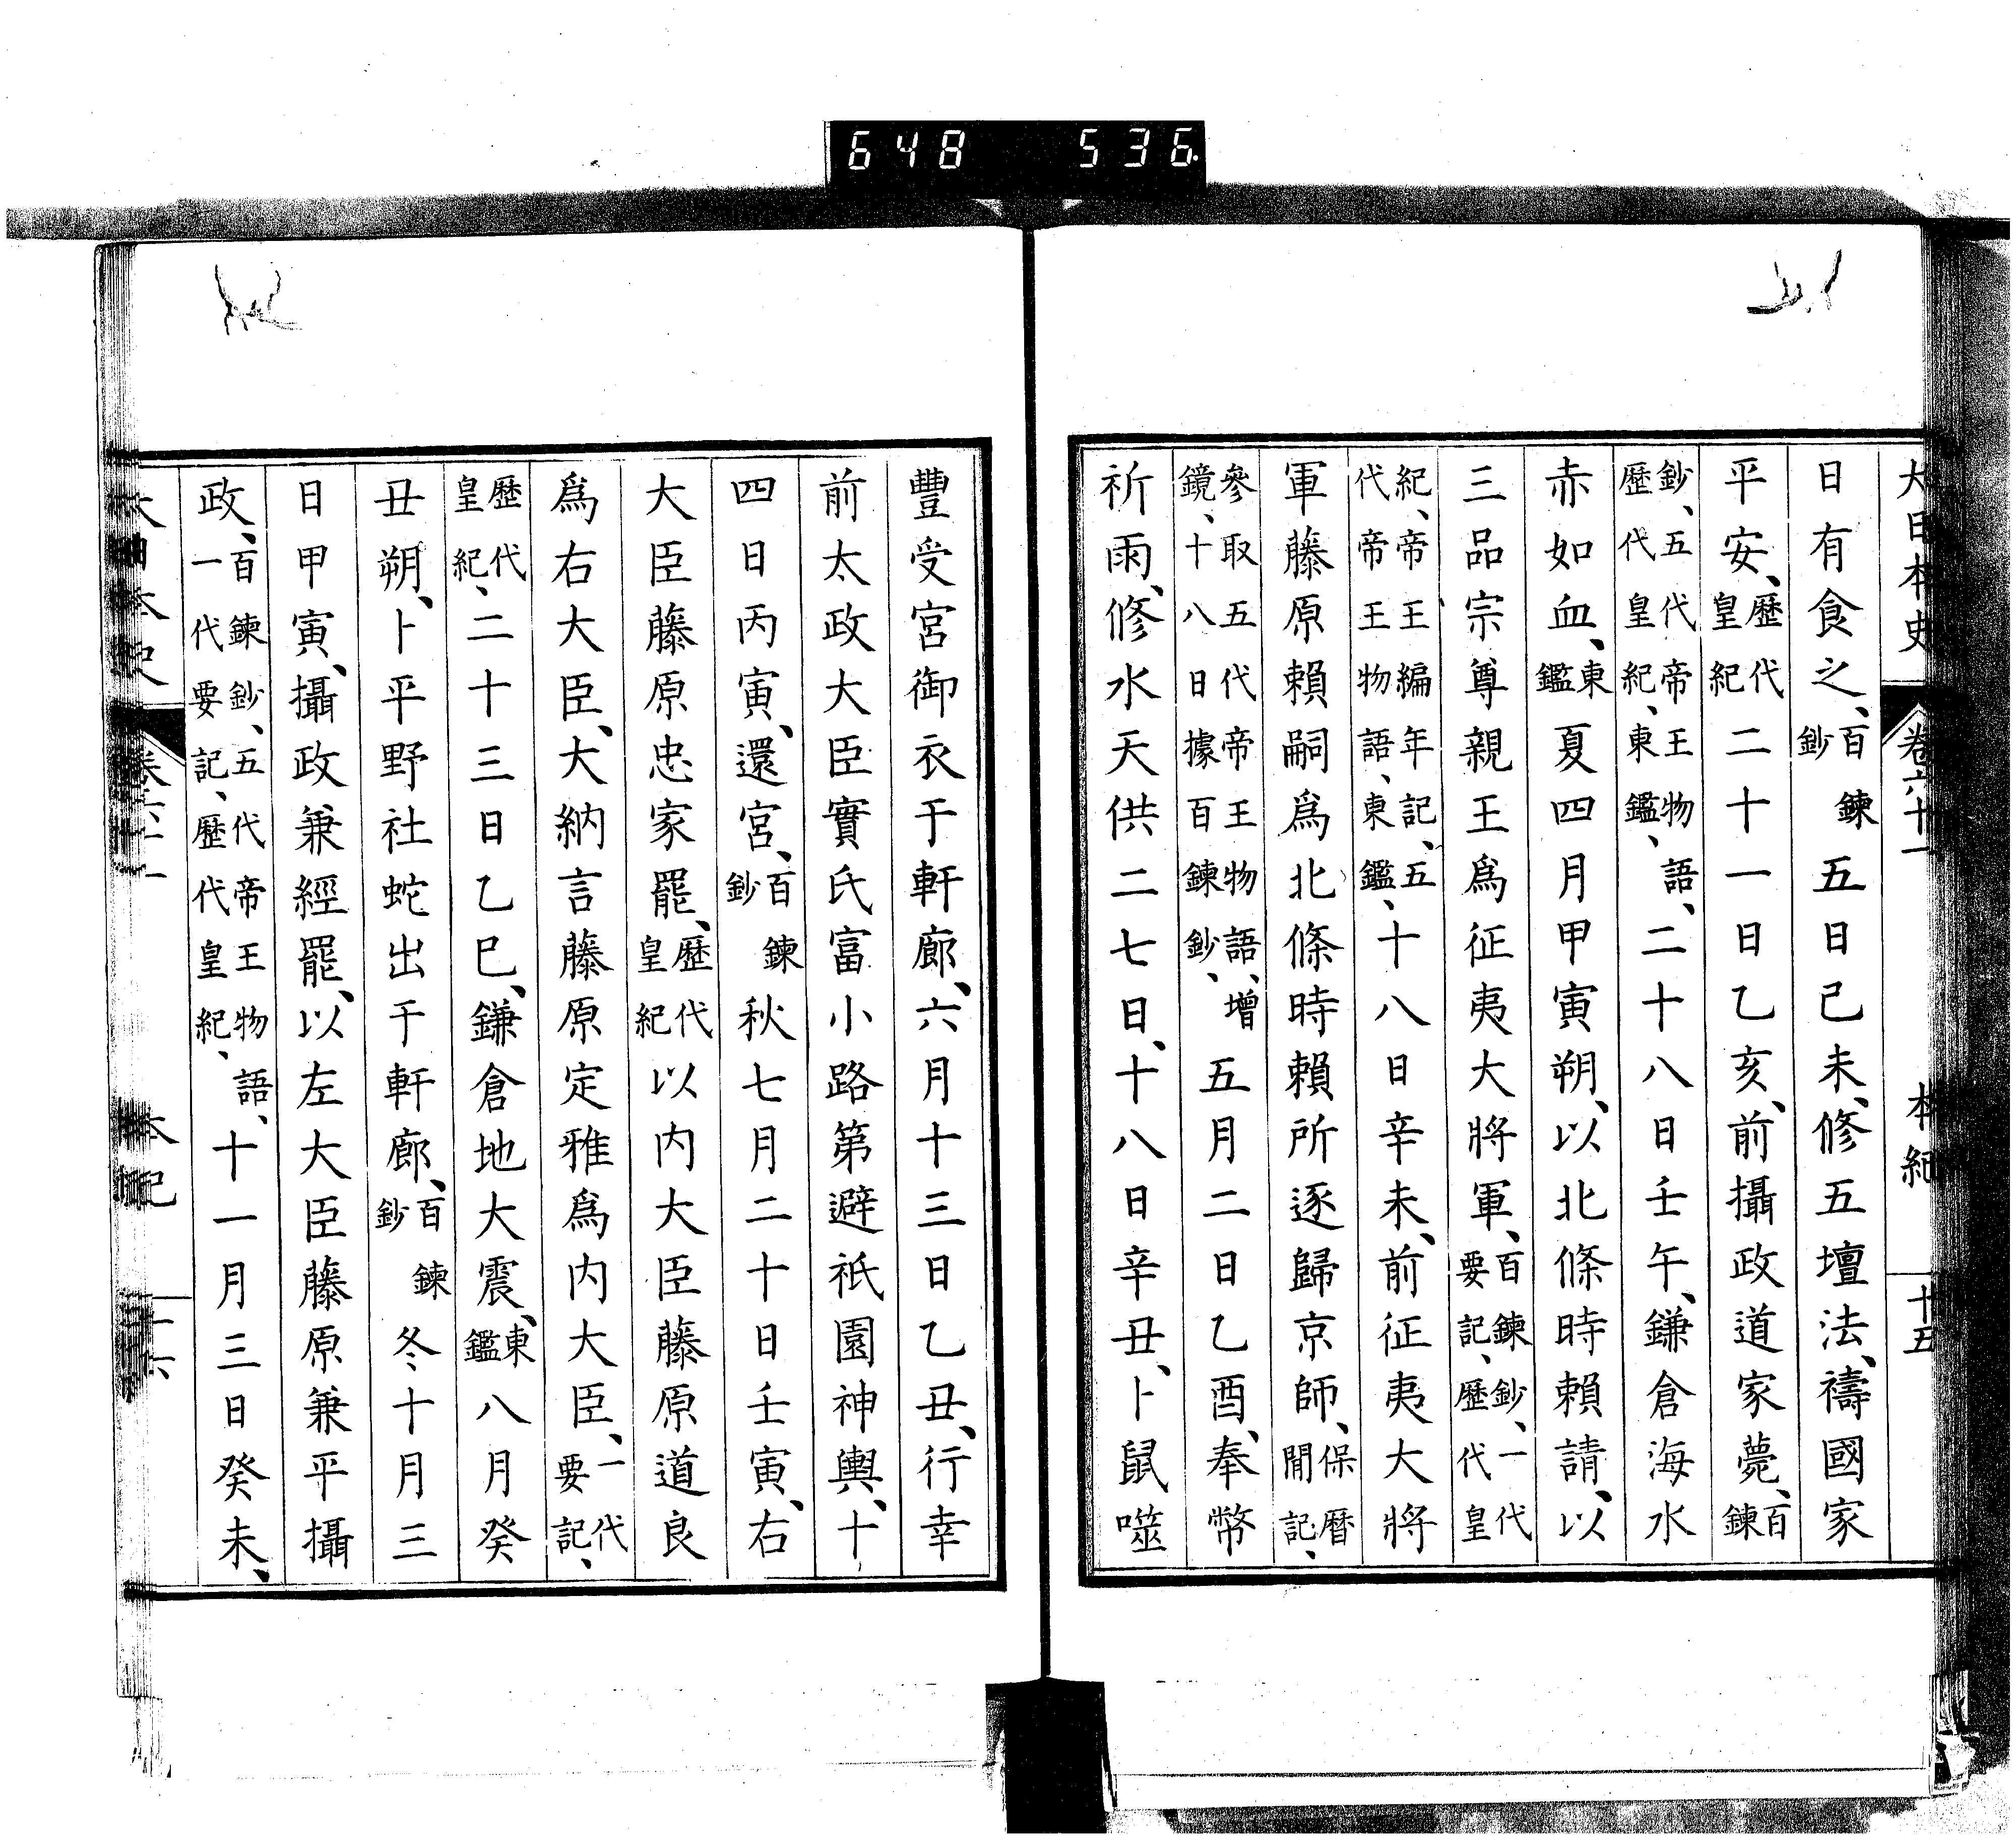 648 536
大日本史 卷六十一 本紀 十五
日有食之、百鍊鈔五日己未、修五壇法、禱國家
平安、歷代皇紀二十一日乙亥、前攝政道家薨、百鍊
鈔、五代帝王物語、歷代皇紀、東鑑、二十八日壬午、鎌倉海水
赤如血、東鑑夏四月甲寅朔、以北條時賴請、以
三品宗尊親王爲征夷大將軍、百鍊鈔、一代要記、歷代皇
紀、帝王編年記、五代帝王物語、東鑑、十八日辛未、前征夷大將
軍藤原賴嗣爲北條時賴所逐歸京師、保曆間記、
參取五代帝王物語、增鏡、十八日據百鍊鈔、五月二日乙酉、奉幣
祈雨、修水天供二七日、十八日辛丑、卜鼠噬
豐受宮御衣于軒廊、六月十三日乙丑、行幸
前太政大臣實氏富小路第避祇園神輿、十
四日丙寅、還宮、百鍊鈔秋七月二十日壬寅、右
大臣藤原忠家罷、歷代皇紀以内大臣藤原道良
爲右大臣、大納言藤原定雅爲内大臣、一代要記、
歷代皇紀、二十三日乙巳、鎌倉地大震、東鑑八月癸
丑朔、卜平野社蛇出于軒廊、百鍊鈔冬十月三
日甲寅、攝政兼經罷、以左大臣藤原兼平攝
政、百鍊鈔、五代帝王物語、一代要記、歷代皇紀、十一月三日癸未、
大日本史 卷六十一 本紀 十六